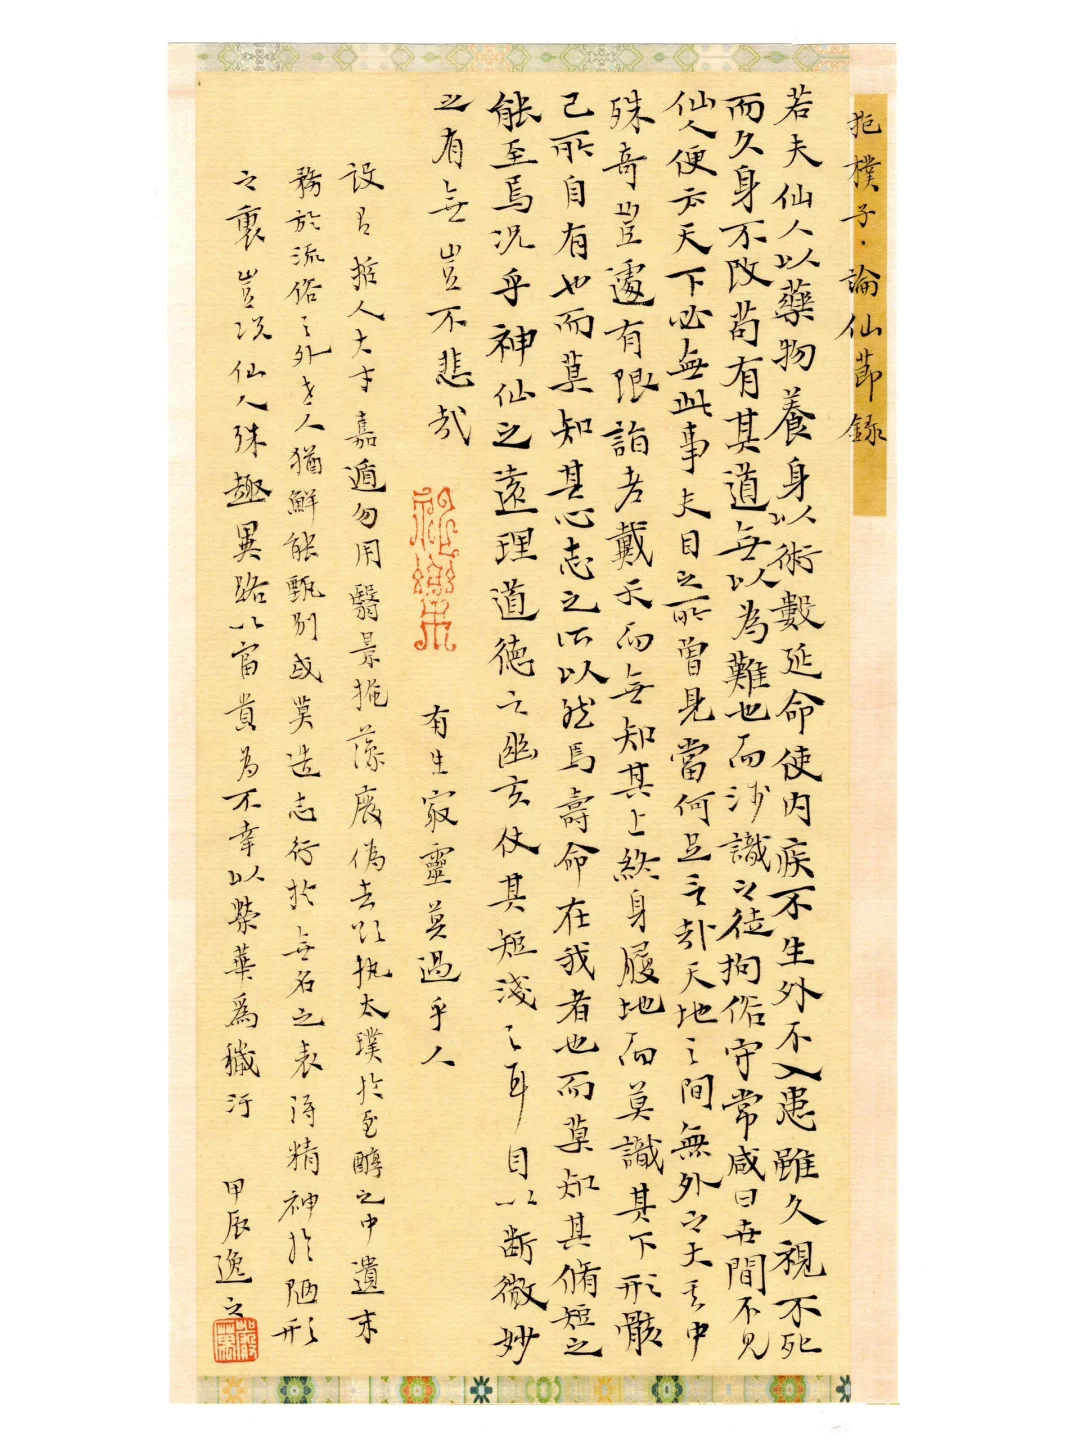 抱樸子·論仙節錄
若夫仙人以藥物養身以術數延命使內疾不生外不入患雖久視不死
而久身不改苟有其道無以為難也而淺識之徒拘俗守常咸曰世間不見
仙人便云天下必無此事夫目之所曾見當何足言哉天地之間無外之大其中
殊奇豈遽有限詣老戴天而無知其上終身履地而莫識其下形骸
己所自有也而莫知其心志之所以然焉壽命在我者也而莫知其脩短之
能至焉況乎神仙之遠理道德之幽玄仗其短淺之耳目以斷微妙
之有無豈不悲哉
有生最靈莫過乎人
設有哲人大才嘉遁勿用翳景掩藻廢偽去欲執太璞於至醇之中遺末
務於流俗之外世人猶鮮能甄別或莫造志行於無名之表得精神於陋形
之裏豈況仙人殊趣異路以富貴為不幸以榮華為穢汙
甲辰逸之